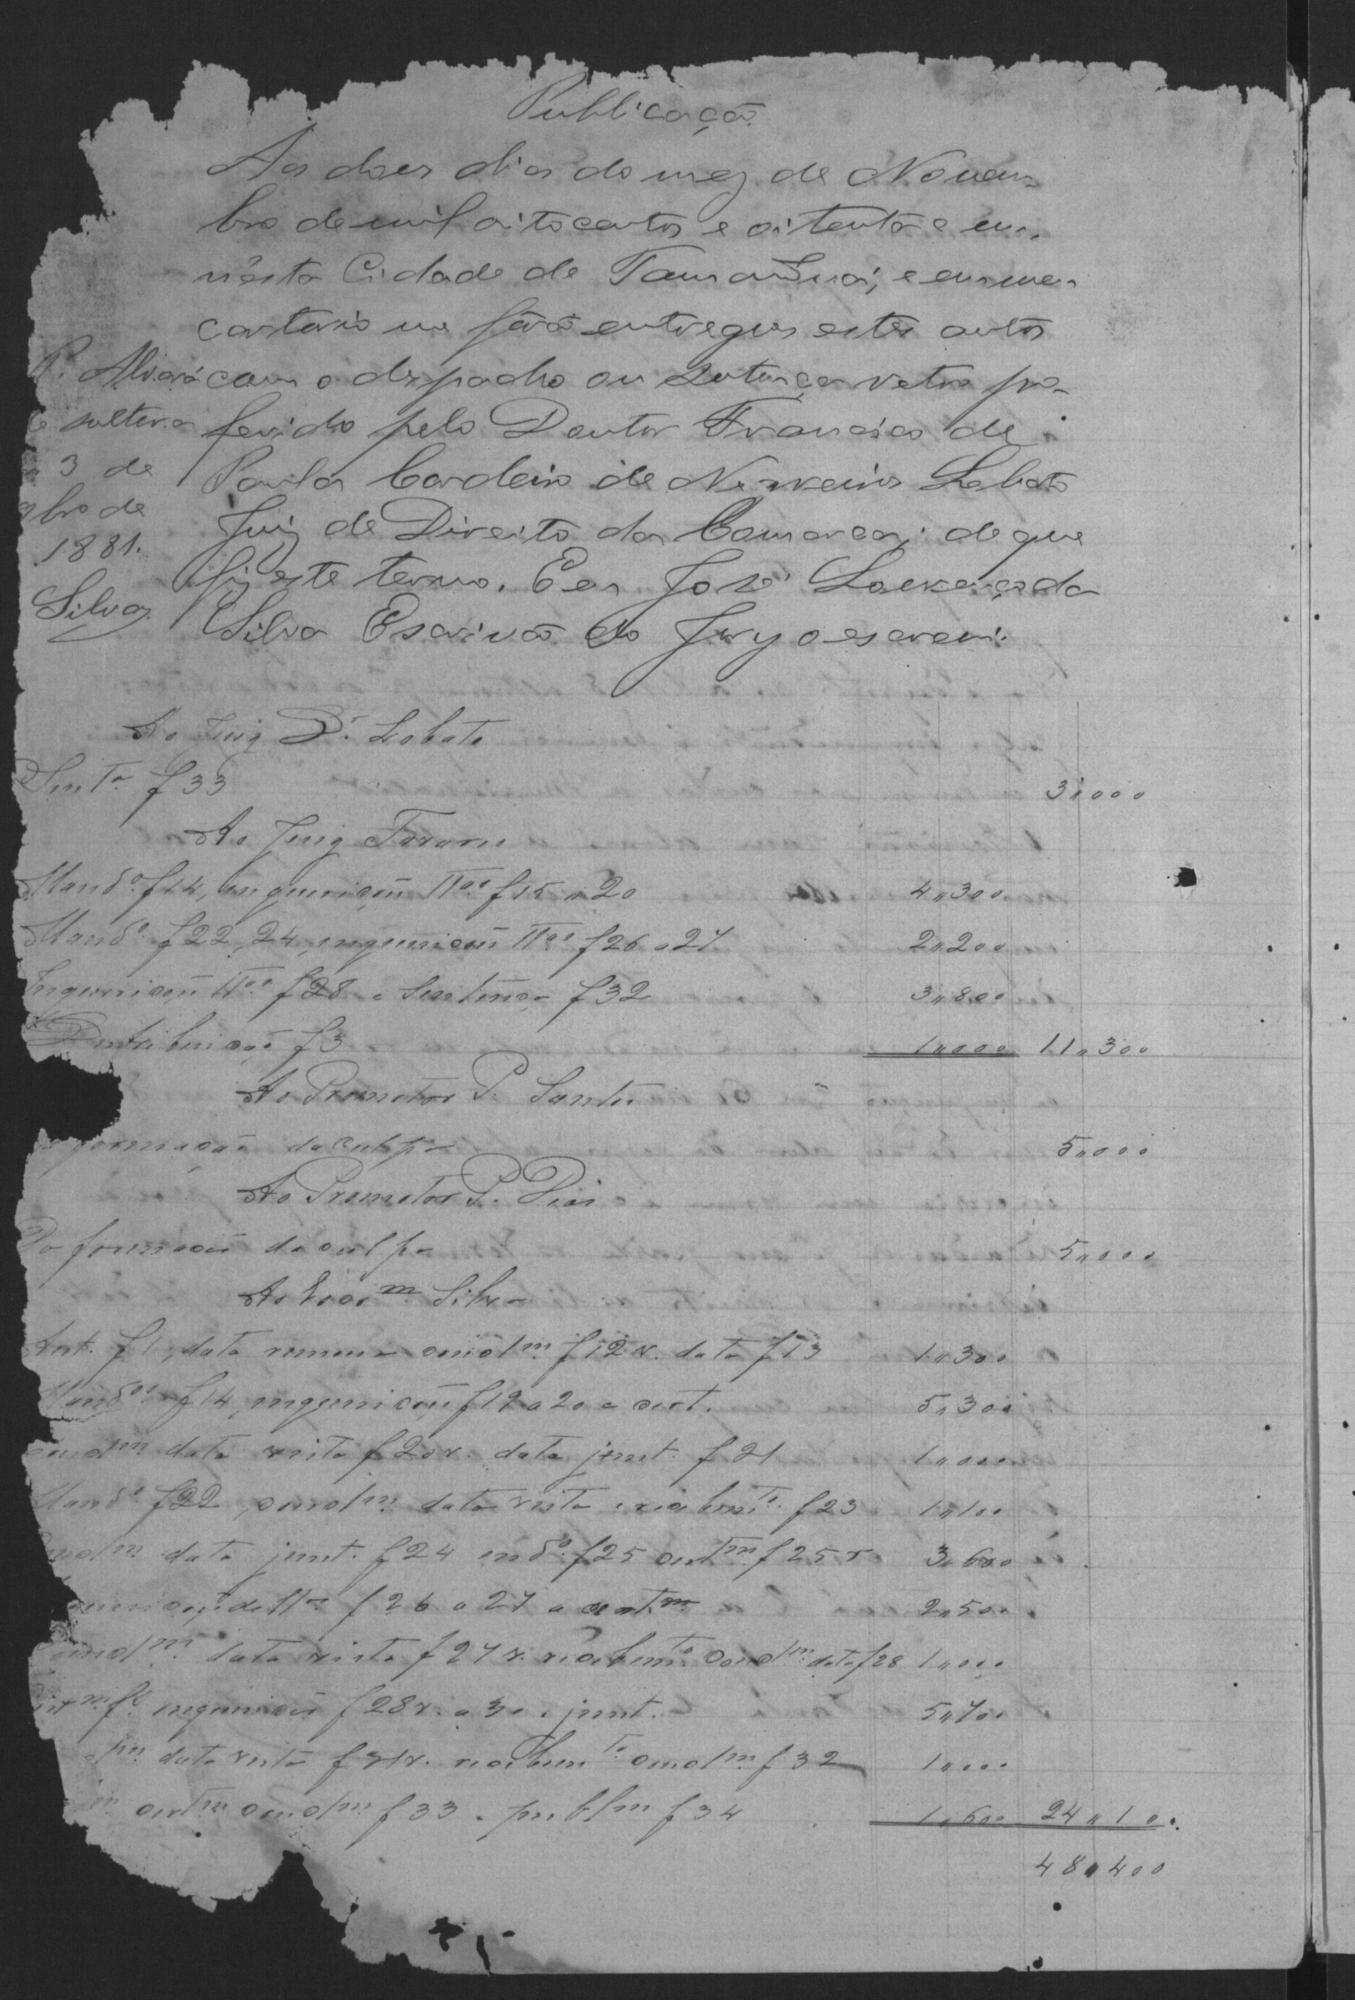 Publicação
Aos doses dias do mez de Novem-
bro de mil oitocentos e oitenta e um,
nésta Cidade de Tamanduá, e em meu
cartorio me forão entregues estes autos
com o despacho ou Sentença retro pro-
ferido pelo Doutor Francisco de
Paula Cordeiro de Negreiros Lobato
Juiz de Direito da Comarca; de que
fiz este termo. Eu José Lourenço da
Silva Escrivão do Jury o escrevi.
P. Alvará
solture
3 de
bro de
1881.
Silva
Ao Juiz Dr. Lobato
Sentª f 33 3,,000
Ao Juiz
Mandº f 14, inquirição ttas f 15 a 20 4,,300
Mandº f 22, 24, inquirição ttas f 26 a 27 2,,200
Inquirição ttas f 28 e Sentença f 32 3,,800
Distribuição f 3 1,,000 11,,300
Ao Promotor P. Santos
formação da culpa 5,,000
Ao Promotor P. Dias
Da formação da culpa 5,,000
Ao Escrm Silva
Aut. f 1, data remessa conclm f 12 v. data f 13 1,,300
Mandos f 14, inquirição f 19 a 20 e cert. 5,300
conclm data vista f 20 v. data junt. f 21 1,,000
Mandº f 22, conclm data vista recebimtº f 23 1,,100
conclm data junt. f 24 mdº f 25 certm f 25 v 3,600
f 26 a 27 e certm 2,,500
conclm data vista f 27 v. recebimtº conclm data f 28 1,,000
inquirição f 28 v. a 30 e junt. 5,,700
data vista f 31 v. recebimtº conclm f 32 1,,000
certm conclm f 33 e publm f 34 1,600 24,,100
48,,400